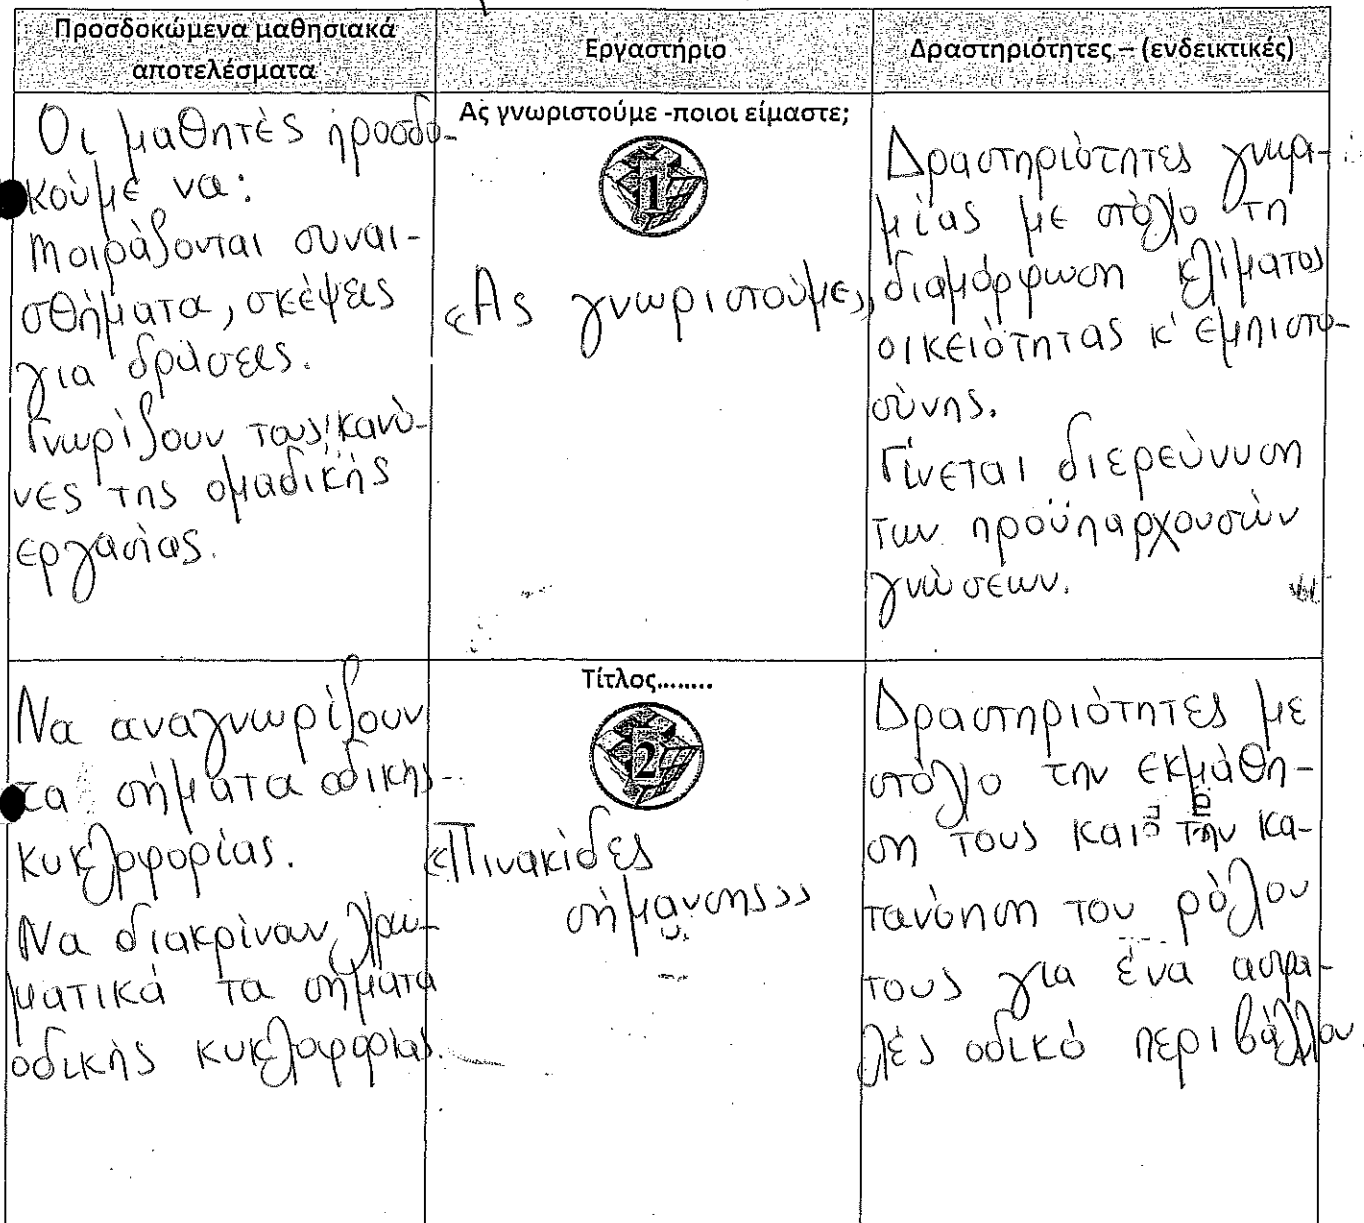 Προσδοκώμενα μαθησιακά
αποτελέσματα
Εργαστήριο
Δραστηριότητες – (ενδεικτικές)
Οι μαθητές προσδο-
κούμε να:
Μοιράζονται συναι-
σθήματα, σκέψεις
για δράσεις.
Γνωρίζουν τους κανό-
νες της ομαδικής
εργασίας.
Ας γνωριστούμε -ποιοι είμαστε;
1
«Ας γνωριστούμε»
Δραστηριότητες γνωρι-
μίας με στόχο τη
διαμόρφωση κλίματος
οικειότητας κ' εμπιστο-
σύνης.
Γίνεται διερεύνυση
των προϋπαρχουσών
γνώσεων.
Να αναγνωρίζουν
τα σήματα οδικής
κυκλοφορίας.
Να διακρίνουν χρω-
ματικά τα σήματα
οδικής κυκλοφορίας.
Τίτλος........
2
«Πινακίδες
σήμανσης»
Δραστηριότητες με
στόχο την εκμάθη-
ση τους και την κα-
τανόηση του ρόλου
τους για ένα ασφα-
λές οδικό περιβάλλον.